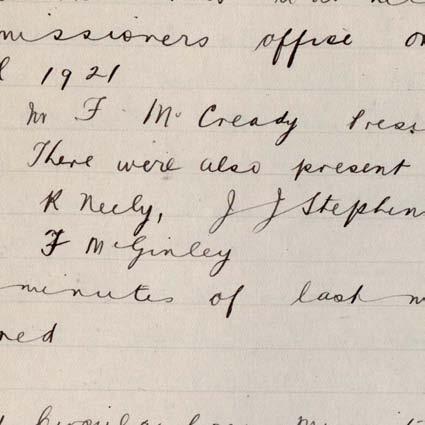 missioners office on
1921
Mr F McCready Press
There were also present
R Neely, J J Stephen
F McGinley
minutes of last m
ned